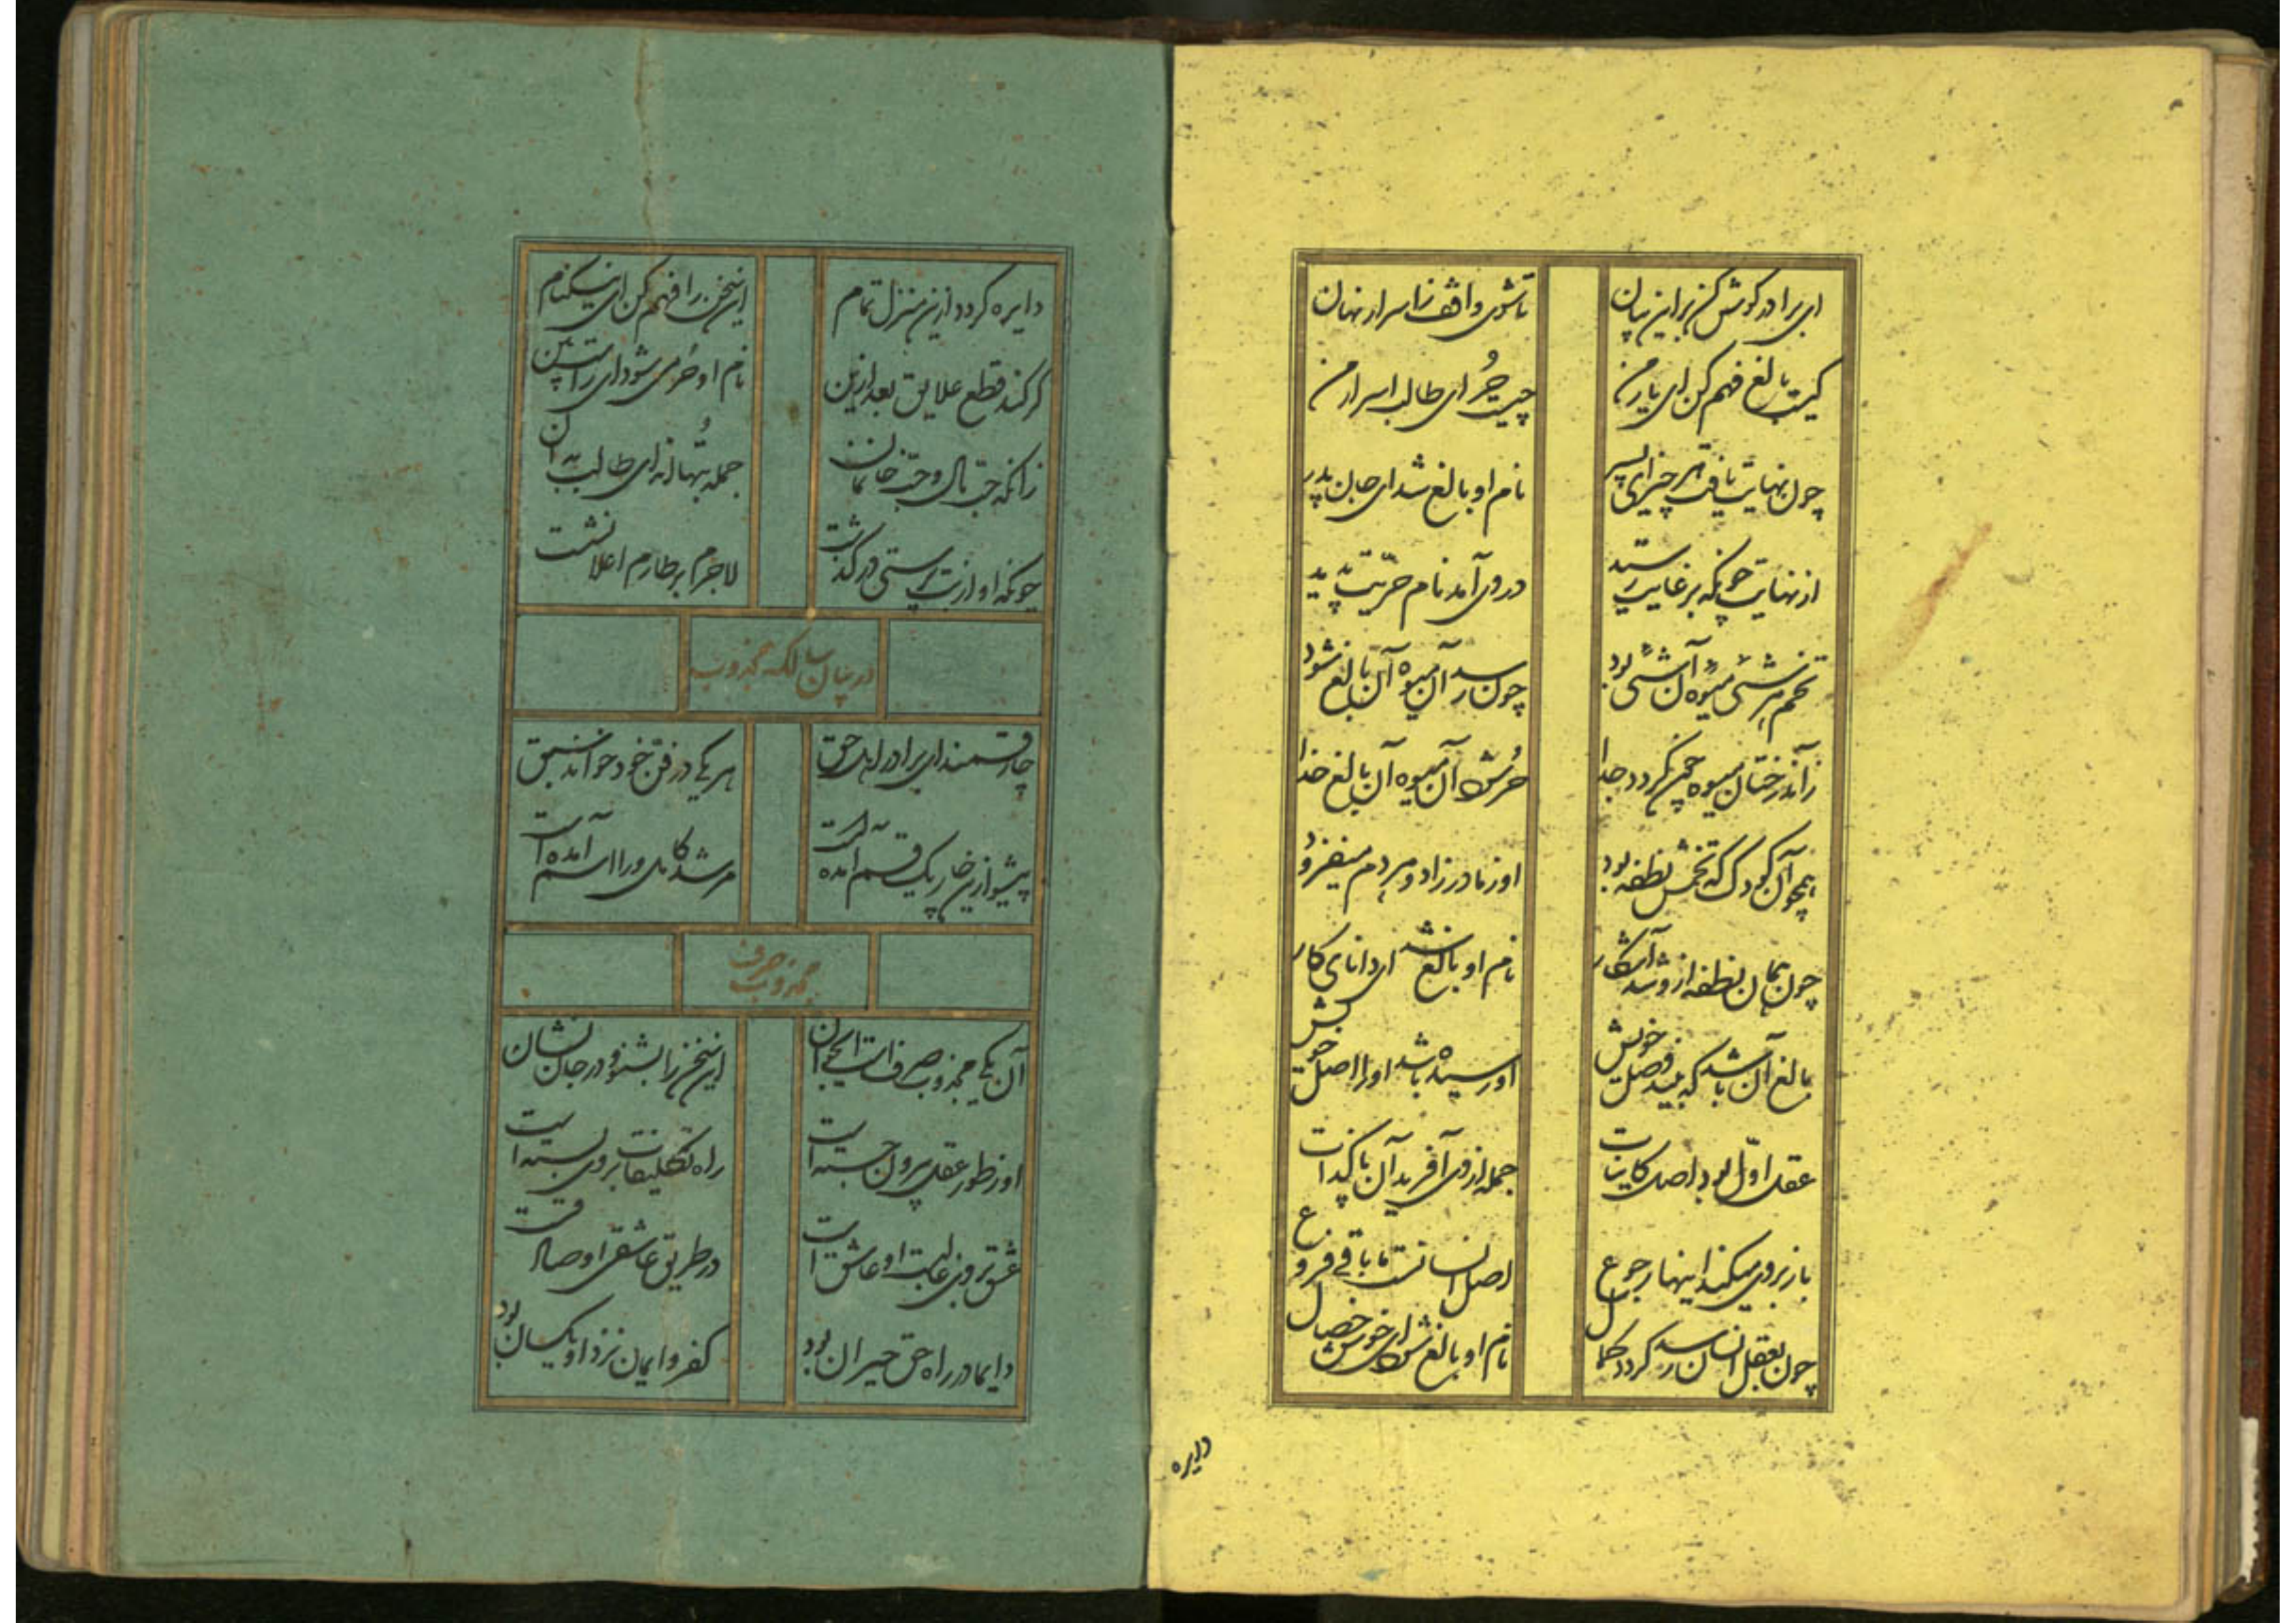 ای برادر گوش کن بر این بیان تا شوی واقف ز اسرار نهان
کیست بالغ فهم کن ای یار من چیست حُر ای طالب اسرار من
چون نهایت یافت هر چیز ای پسر نام او بالغ شد ای جان پدر
از نهایت چونکه بر غایت رسید در وی آمد نام حرّیت پدید
تخم هر شئی میوهٔ آن شئی بود چون رسد آن میوه آن بالغ شود
زآن درختان میوه چون گردد جدا حُر شد آن میوه آن بالغ خدا
همچو آن کودک که تخمش نطفه بود او ز مادر زاد و هر دم میفزود
چون همان نطفه ازو شد آشکار نام او بالغ شد ای دانای کار
بالغ آن باشد که بیند وصل خویش او رسیده باشد او را اصل خویش
عقل اوّل بود اصل کاینات جمله از وی آفرید آن پاک ذات
باز بر وی میکند اینها رجوع اصل انسانست مابقی فروع
چون بعقل انسان رسد گردد کمال نام او بالغ شد ای خوش خصال
دایره
دایره گردد ازین منزل تمام این سخن را فهم کن ای نیکنام
گر کند قطع علایق بعد ازین نام او حُر می شود ای راست بین
زانکه حب مال و حب خانمان جمله بتهااند ای طالب بدان
چونکه او از بت پرستی درگذشت لاجرم بر طارم اعلا نشست
در بیان سالک مجذوب
چار قسمند ای برادر اهل حق هر یکی در فن خود خواند سبق
پیش ازین خار یک قسم آمده است مرشد کامل ورا اسم آمده است
مجذوب صرف
آن یکی مجذوب صرفست ای جوان این سخن را بشنو و در جان نشان
او ز طور عقل بیرون جسته است راه تکلیفات بر وی بسته است
عشق بر وی غالبست او عاشق است در طریق عاشقی او صادقست
دایما در راه حق حیران بود کفر و ایمان نزد او یکسان بود